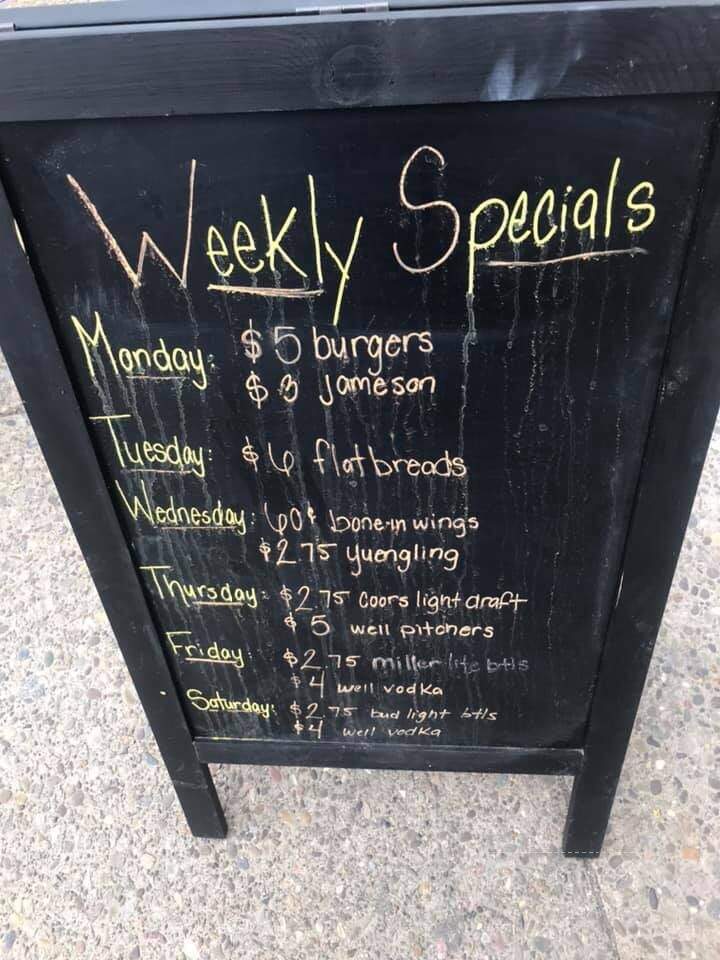 Weekly Specials
Monday: $5 burgers
$3 Jameson
Tuesday: $6 flatbreads
Wednesday: 60¢ bone-in wings
$2.75 yuengling
Thursday: $2.75 Coors light draft
$5 well pitchers
Friday: $2.75 miller lite btls
$4 well vodka
Saturday: $2.75 bud light btls
$4 well vodka